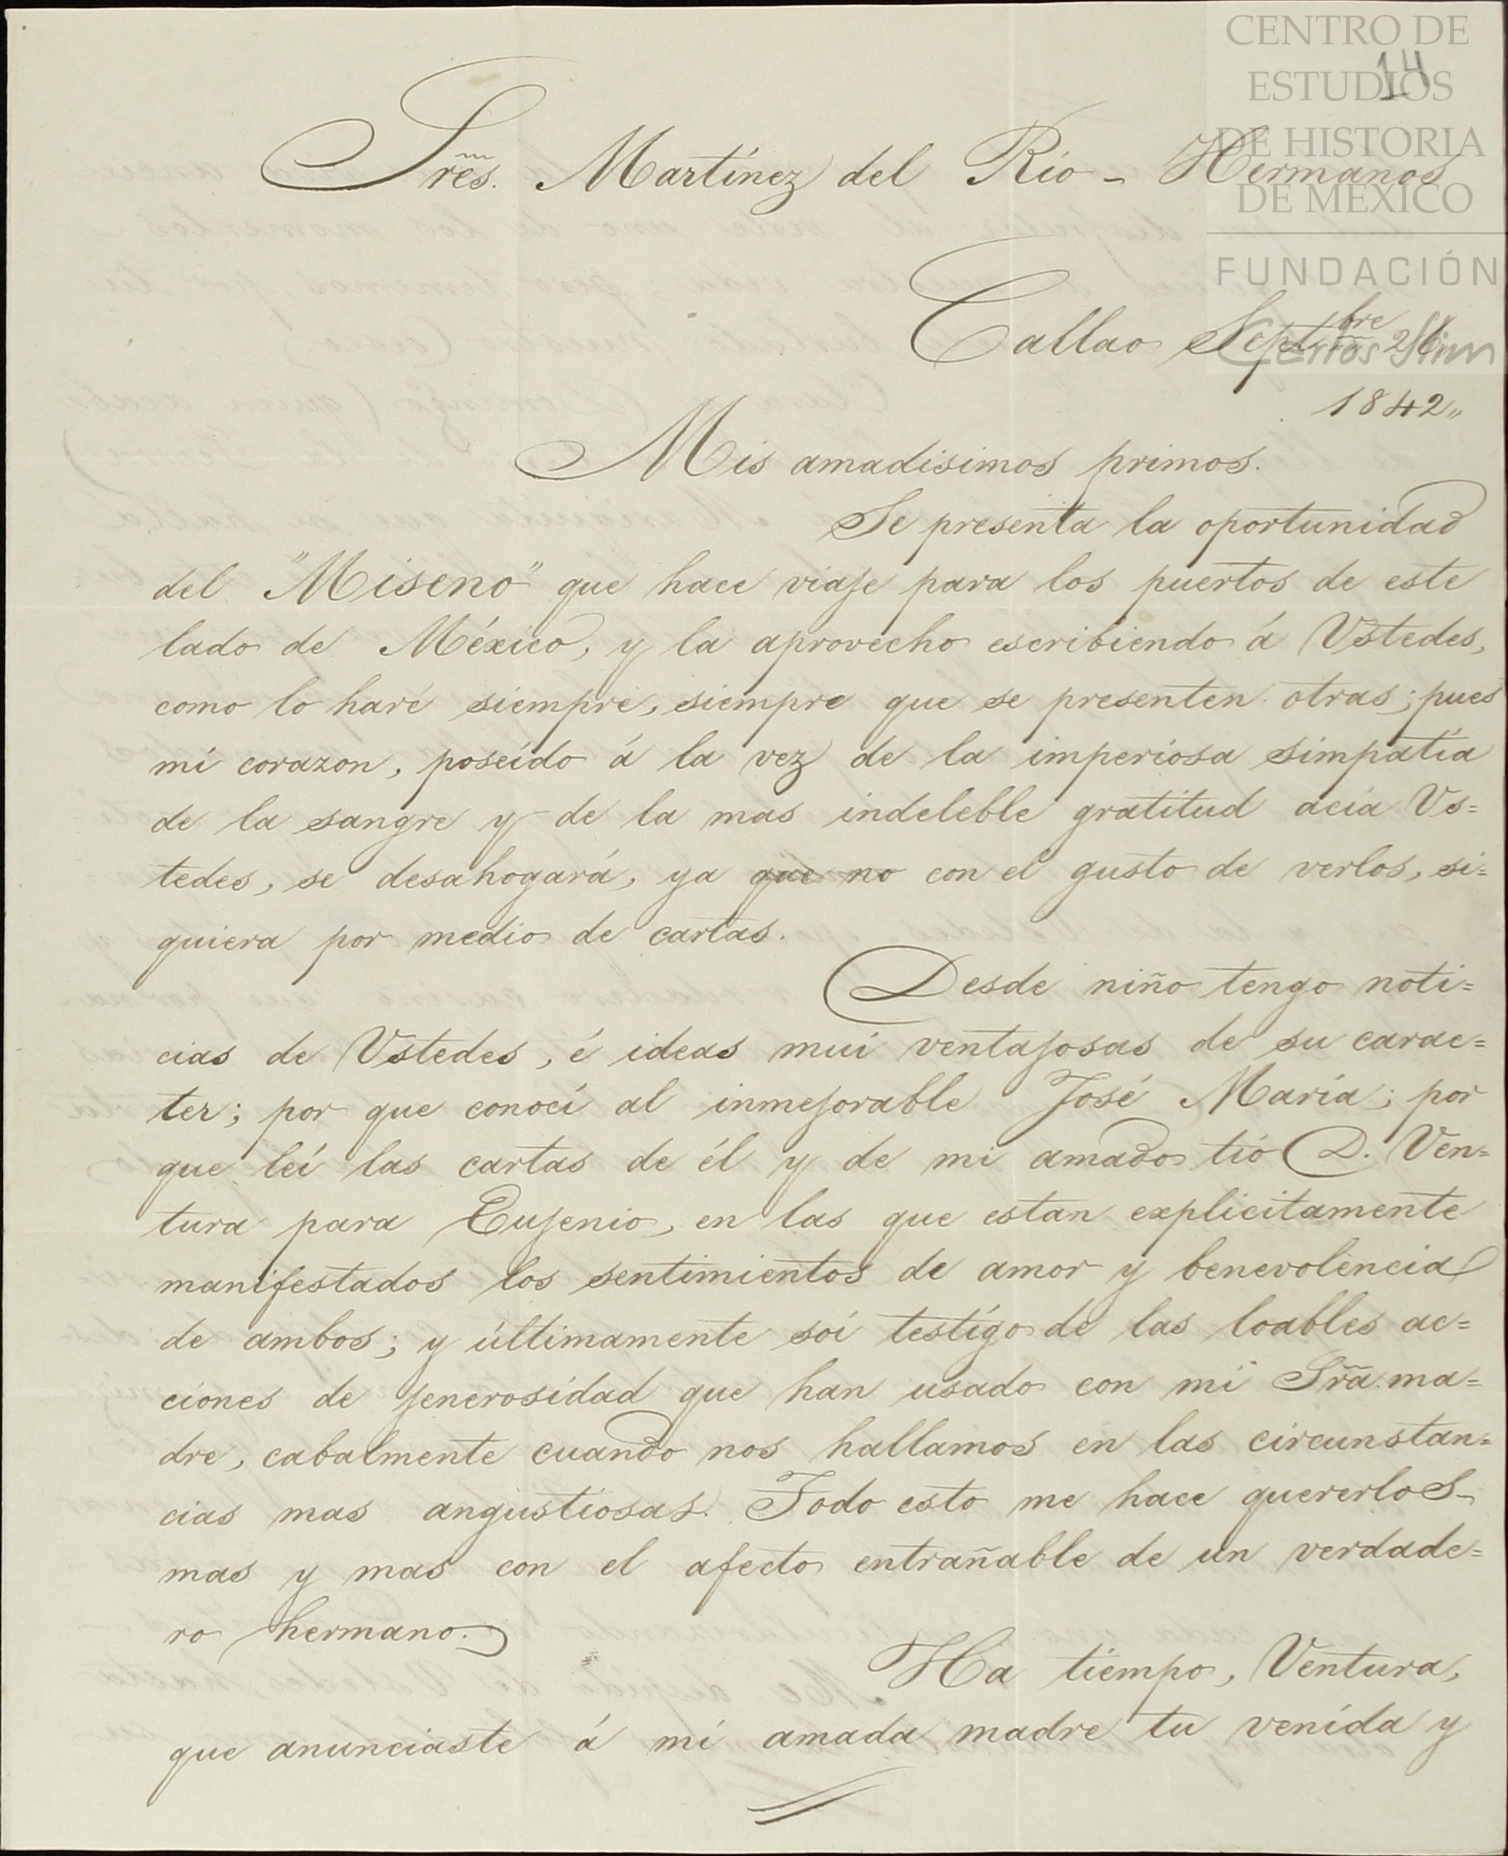 CENTRO DE
ESTUDIOS
DE HISTORIA
DE MÉXICO
FUNDACIÓN
Carlos Slim
14
Sres. Martínez del Río - Hermanos
Callao Septbre 26
1842„
Mis amadisimos primos.
Se presenta la oportunidad
del "Miseno" que hace viaje para los puertos de este
lado de México, y la aprovecho escribiendo á Vstedes,
como lo haré siempre, siempre que se presenten otras; pues
mi corazon, poseído á la vez de la imperiosa simpatía
de la sangre y de la mas indeleble gratitud acia Vs=
tedes, se desahogará, ya que no con el gusto de verlos, si=
quiera por medio de cartas.
Desde niño tengo noti=
cias de Vstedes, é ideas mui ventajosas de su carac=
ter; por que conocí al inmejorable José María; por
que leí las cartas de él y de mi amado tió D. Ven=
tura para Eujenio, en las que estan explicitamente
manifestados los sentimientos de amor y benevolencia
de ambos; y últimamente soi testígo de las loables ac=
ciones de jenerosidad que han usado con mi Sra. ma=
dre, cabalmente cuando nos hallamos en las circunstan=
cias mas angustiosas. Todo esto me hace quererlos
mas y mas con el afecto entrañable de un verdade=
ro hermano.
Ha tiempo, Ventura,
que anunciaste á mi amada madre tu venida y